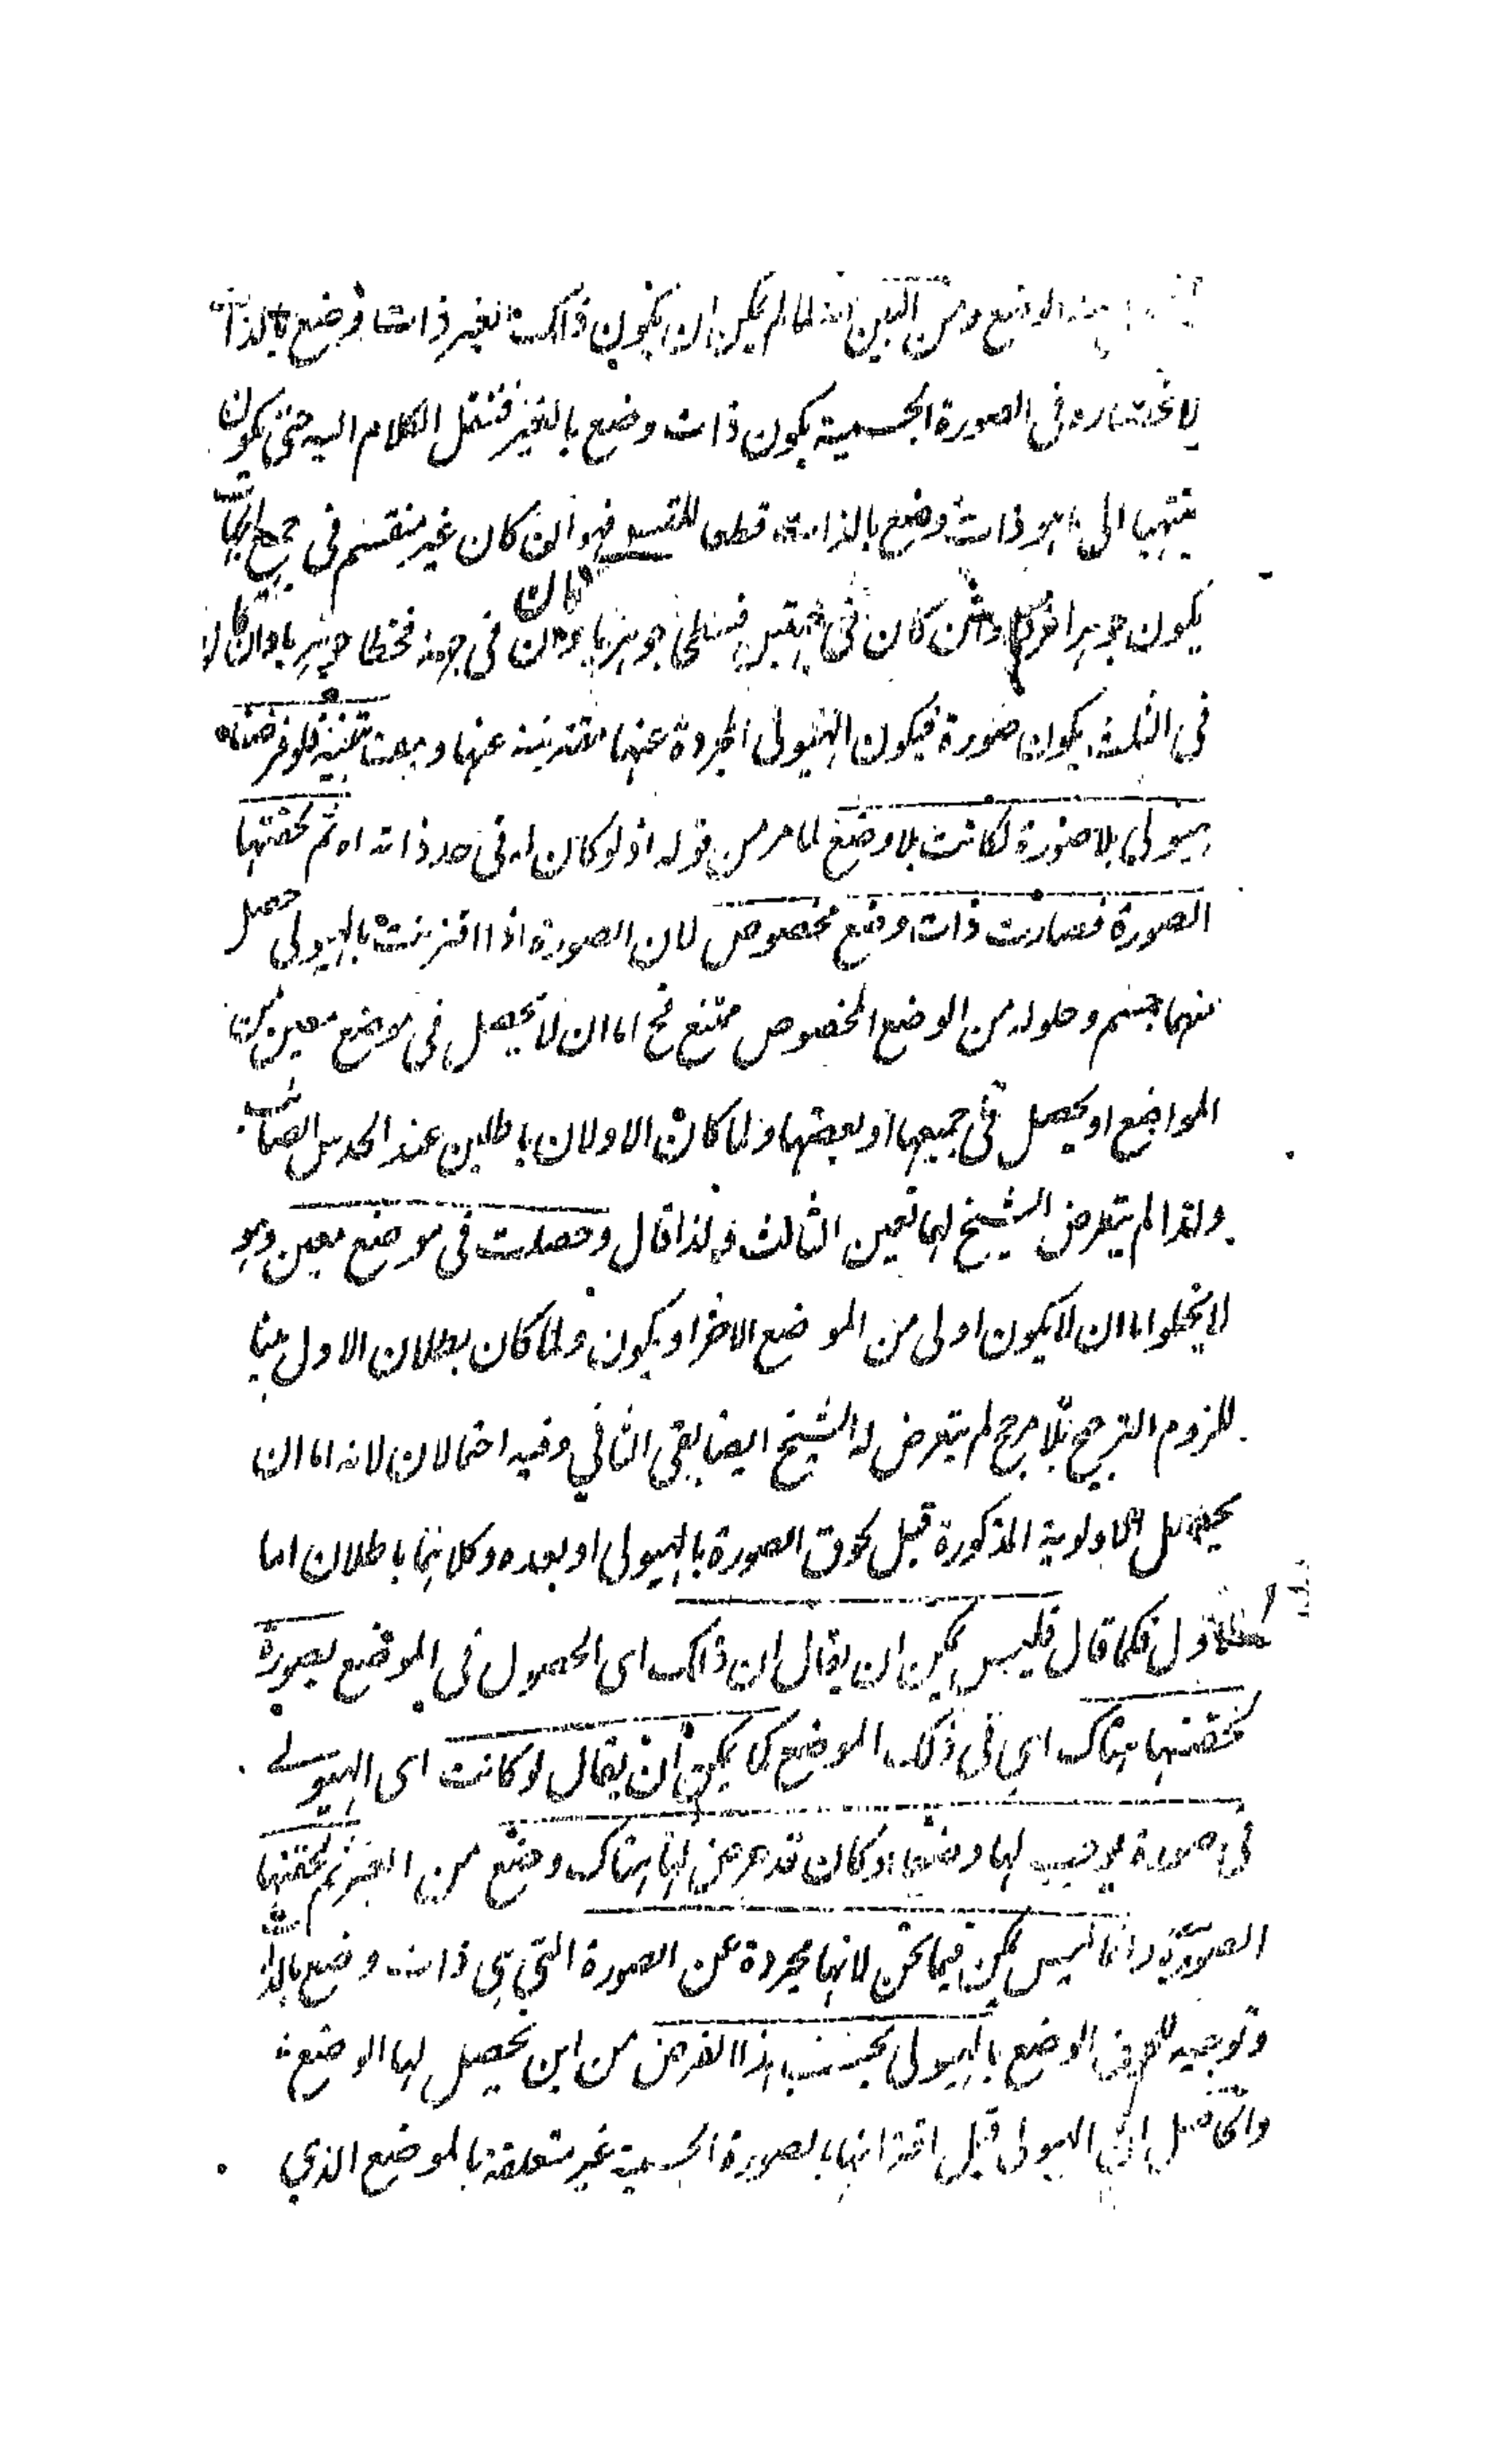 الوضع ومن البين انه لما لم يمكن ان يكون ذلك الغير ذات وضع بالذات
لانحصاره فى الصورة الجسمية يكون ذات وضع بالغير فننقل الكلام اليه حتى يكون
ينتهيا الى ما هو ذات وضع بالذات قطعا للتسـ فهو ان كان غير منقسم فى جميع الجهات
يكون جوهرا فردا وان كان فى جهتين فسطحا جوهريا وان كان فى جهة فخطا جوهريا وان كان
فى الثلث يكون صورة فيكون الهيولى المجردة عنها مقترنة عنها وبعت تنبيه فلو فرضناه
هيولى بلا صورة لكانت بلا وضع لما مر من قوله اذ لو كان له فى حد ذاته اه ثم لحقتها
الصورة فصارت ذات وضع مخصوص لان الصورة اذا اقترنت بالهيولى حصل
منهما جسم وحلوله من الوضع المخصوص ممتنع فح اما ان لا يحصل فى موضع معين من
المواضع او يحصل فى جميعها او بعضها ولما كان الاولان باطلين عند الحدس الصائب
ولذا لم يتعرض الشيخ لهما تعين الثالث ولذا قال وحصلت فى موضع معين وهو
لا يخلو اما ان لا يكون اولى من الموضع الاخر او يكون ولما كان بطلان الاول بينا
للزوم الترجيح بلا مرجح لم يتعرض له الشيخ ايضا بقى الثانى وفيه احتمالان لانه اما ان
يحصل الاولوية المذكورة قبل لحوق الصورة بالهيولى او بعده وكلاهما باطلان اما
الاول فلما قال فليس يمكن ان يقال ان ذلك اى الحصول فى الموضع بصورة
لحقتها هناك اى فى ذلك الموضع كما يمكن ان يقال لو كانت اى الهيولى
فى صورة يوجب لها وضعا او كان قد عرض لها هناك وضع من الغير ثم لحقتها
الصورة وانما ليس يمكن فيما نحن لانها مجردة عن الصورة التى هى ذات وضع بالذات
وتوجيه للعرفى الوضع بالهيولى بحسب هذا الفرض من اين يحصل لها الوضع
والحاصل ان الهيولى قبل اقترانها بالصورة الجسمية غير متعلقة بالموضع الذى